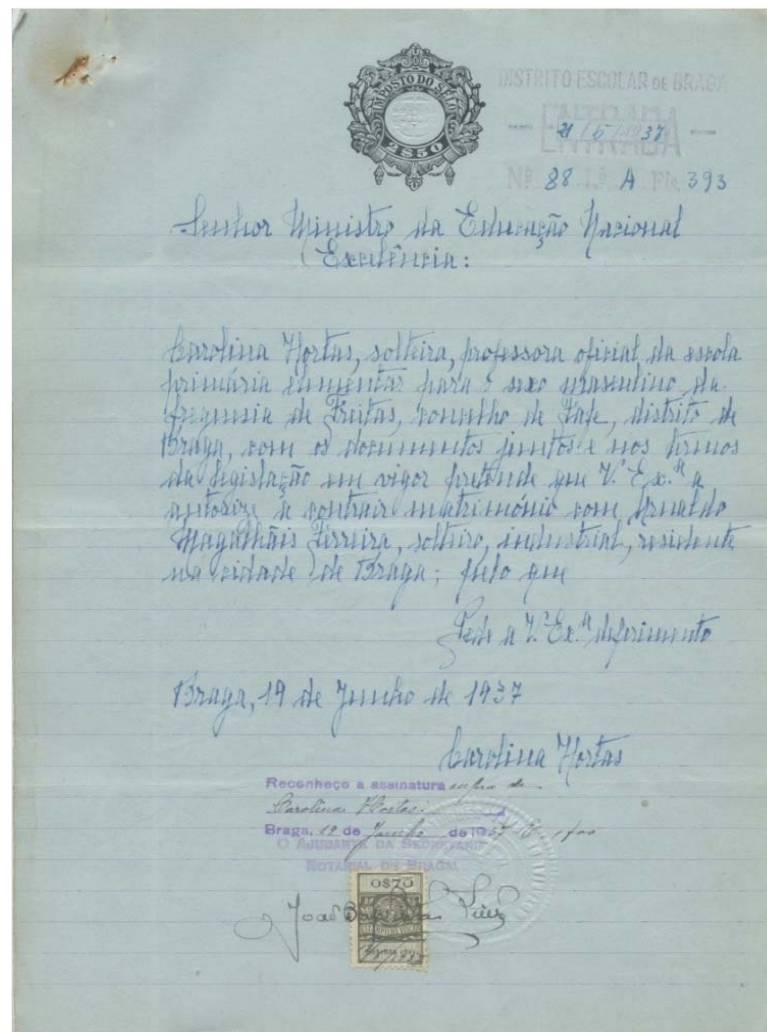 IMPOSTO DO SELO
2$50
DISTRITO ESCOLAR DE BRAGA
ENTRADA
21/6/1937
Nº 88 Lº A Fls 393
Senhor Ministro da Educação Nacional
Excelência:
Carolina Hortas, solteira, professora oficial da escola
primária elementar para o sexo masculino, da
freguesia de Freitas, concelho de Fafe, distrito de
Braga, com os documentos juntos e nos termos
da legislação em vigor pretende que V. Ex.ª a
autorize a contrair matrimónio com Arnaldo
Magalhãis Ferreira, solteiro, industrial, residente
na cidade de Braga; pelo que
Pede a V. Ex.ª deferimento
Braga, 19 de Junho de 1937
Carolina Hortas
Reconheço a assinatura supra de
Carolina Hortas.
Braga, 19 de Junho de 1937
O AJUDANTE DA SECRETARIA
NOTARIAL DE BRAGA
0$70
João Baptista